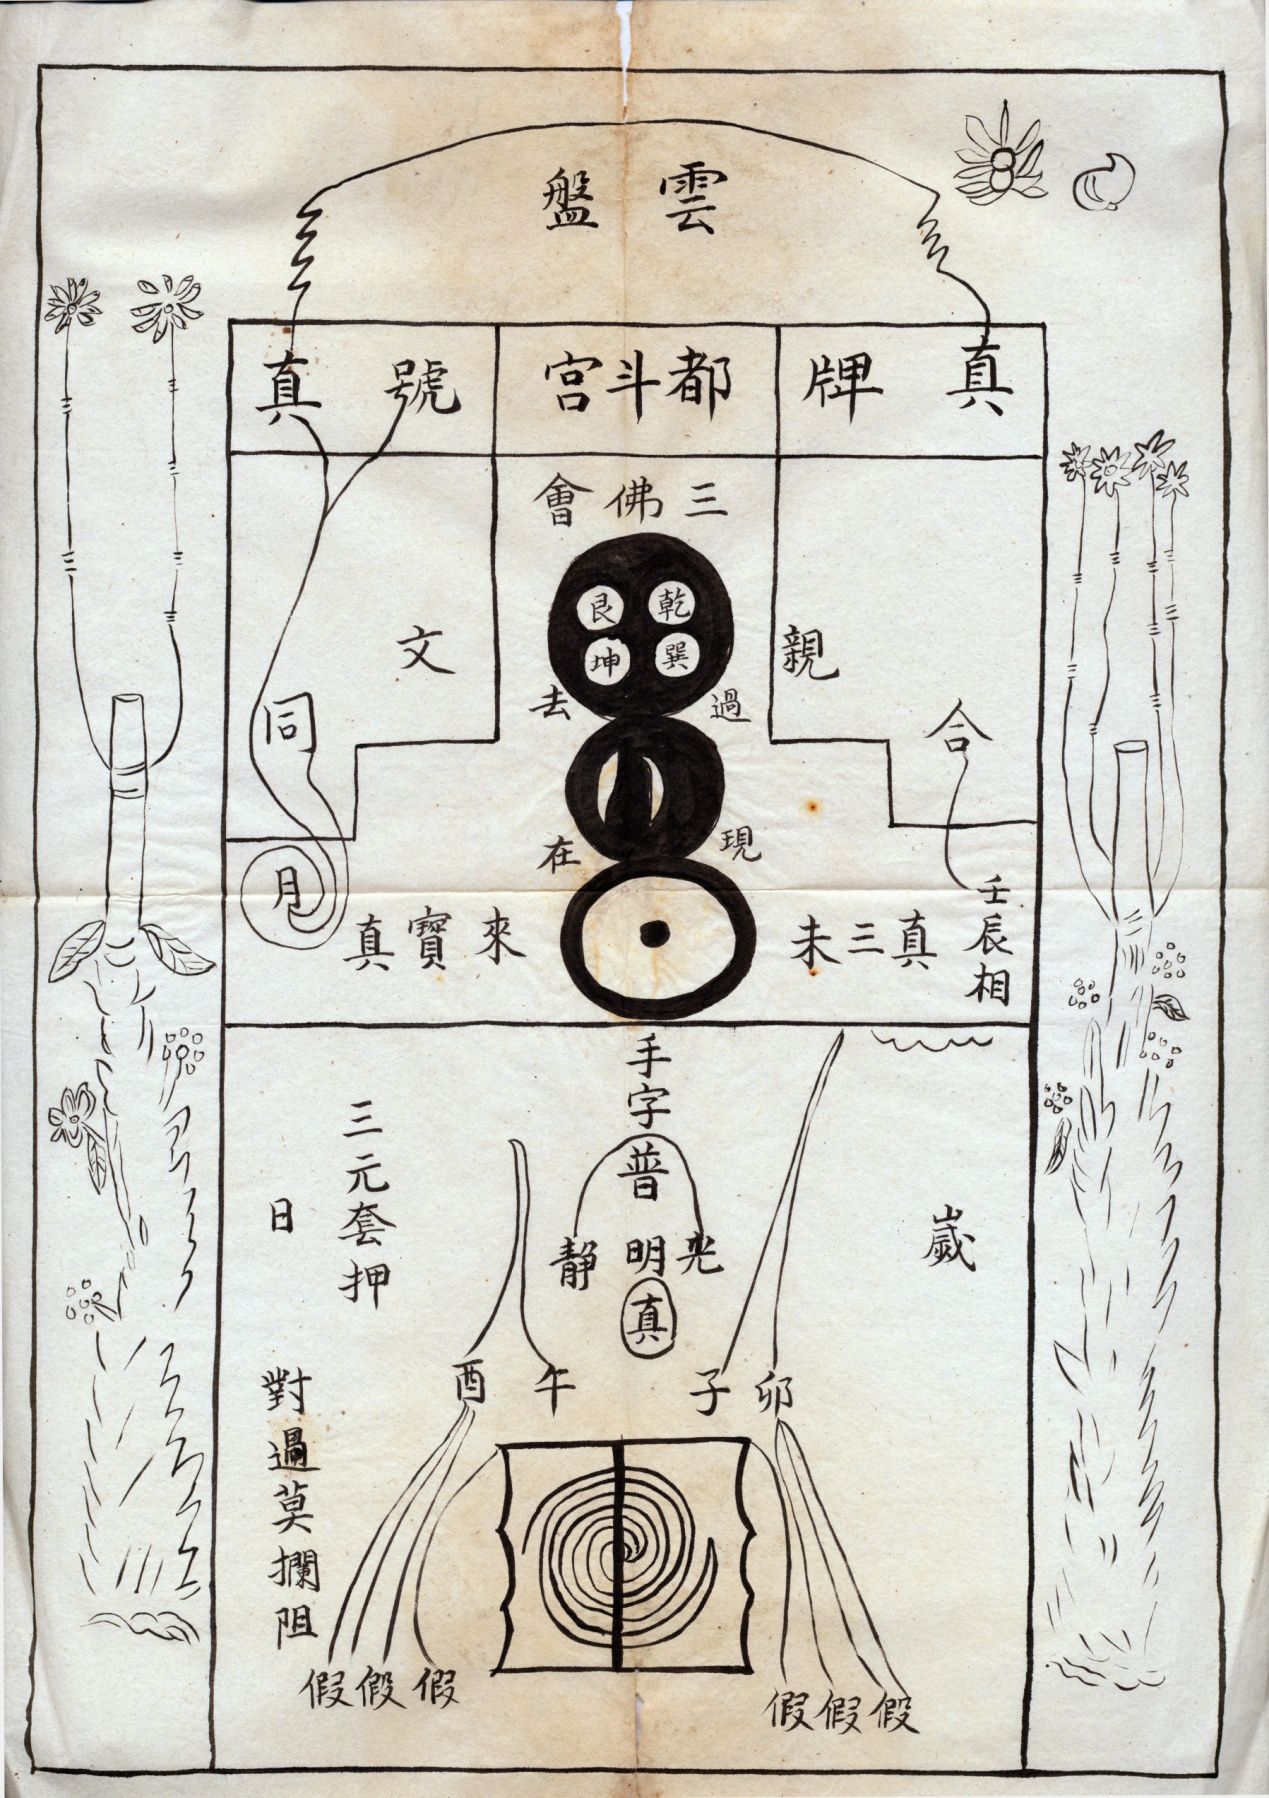 雲盤
真牌
都斗宮
號真
三佛會
乾
艮
巽
坤
過去
親
合
文
同
現在
壬辰相
真三未
來寶真
月
手字普
光明靜
真
歲
三元套押
日
子卯
午酉
對過莫攔阻
假假假
假假假